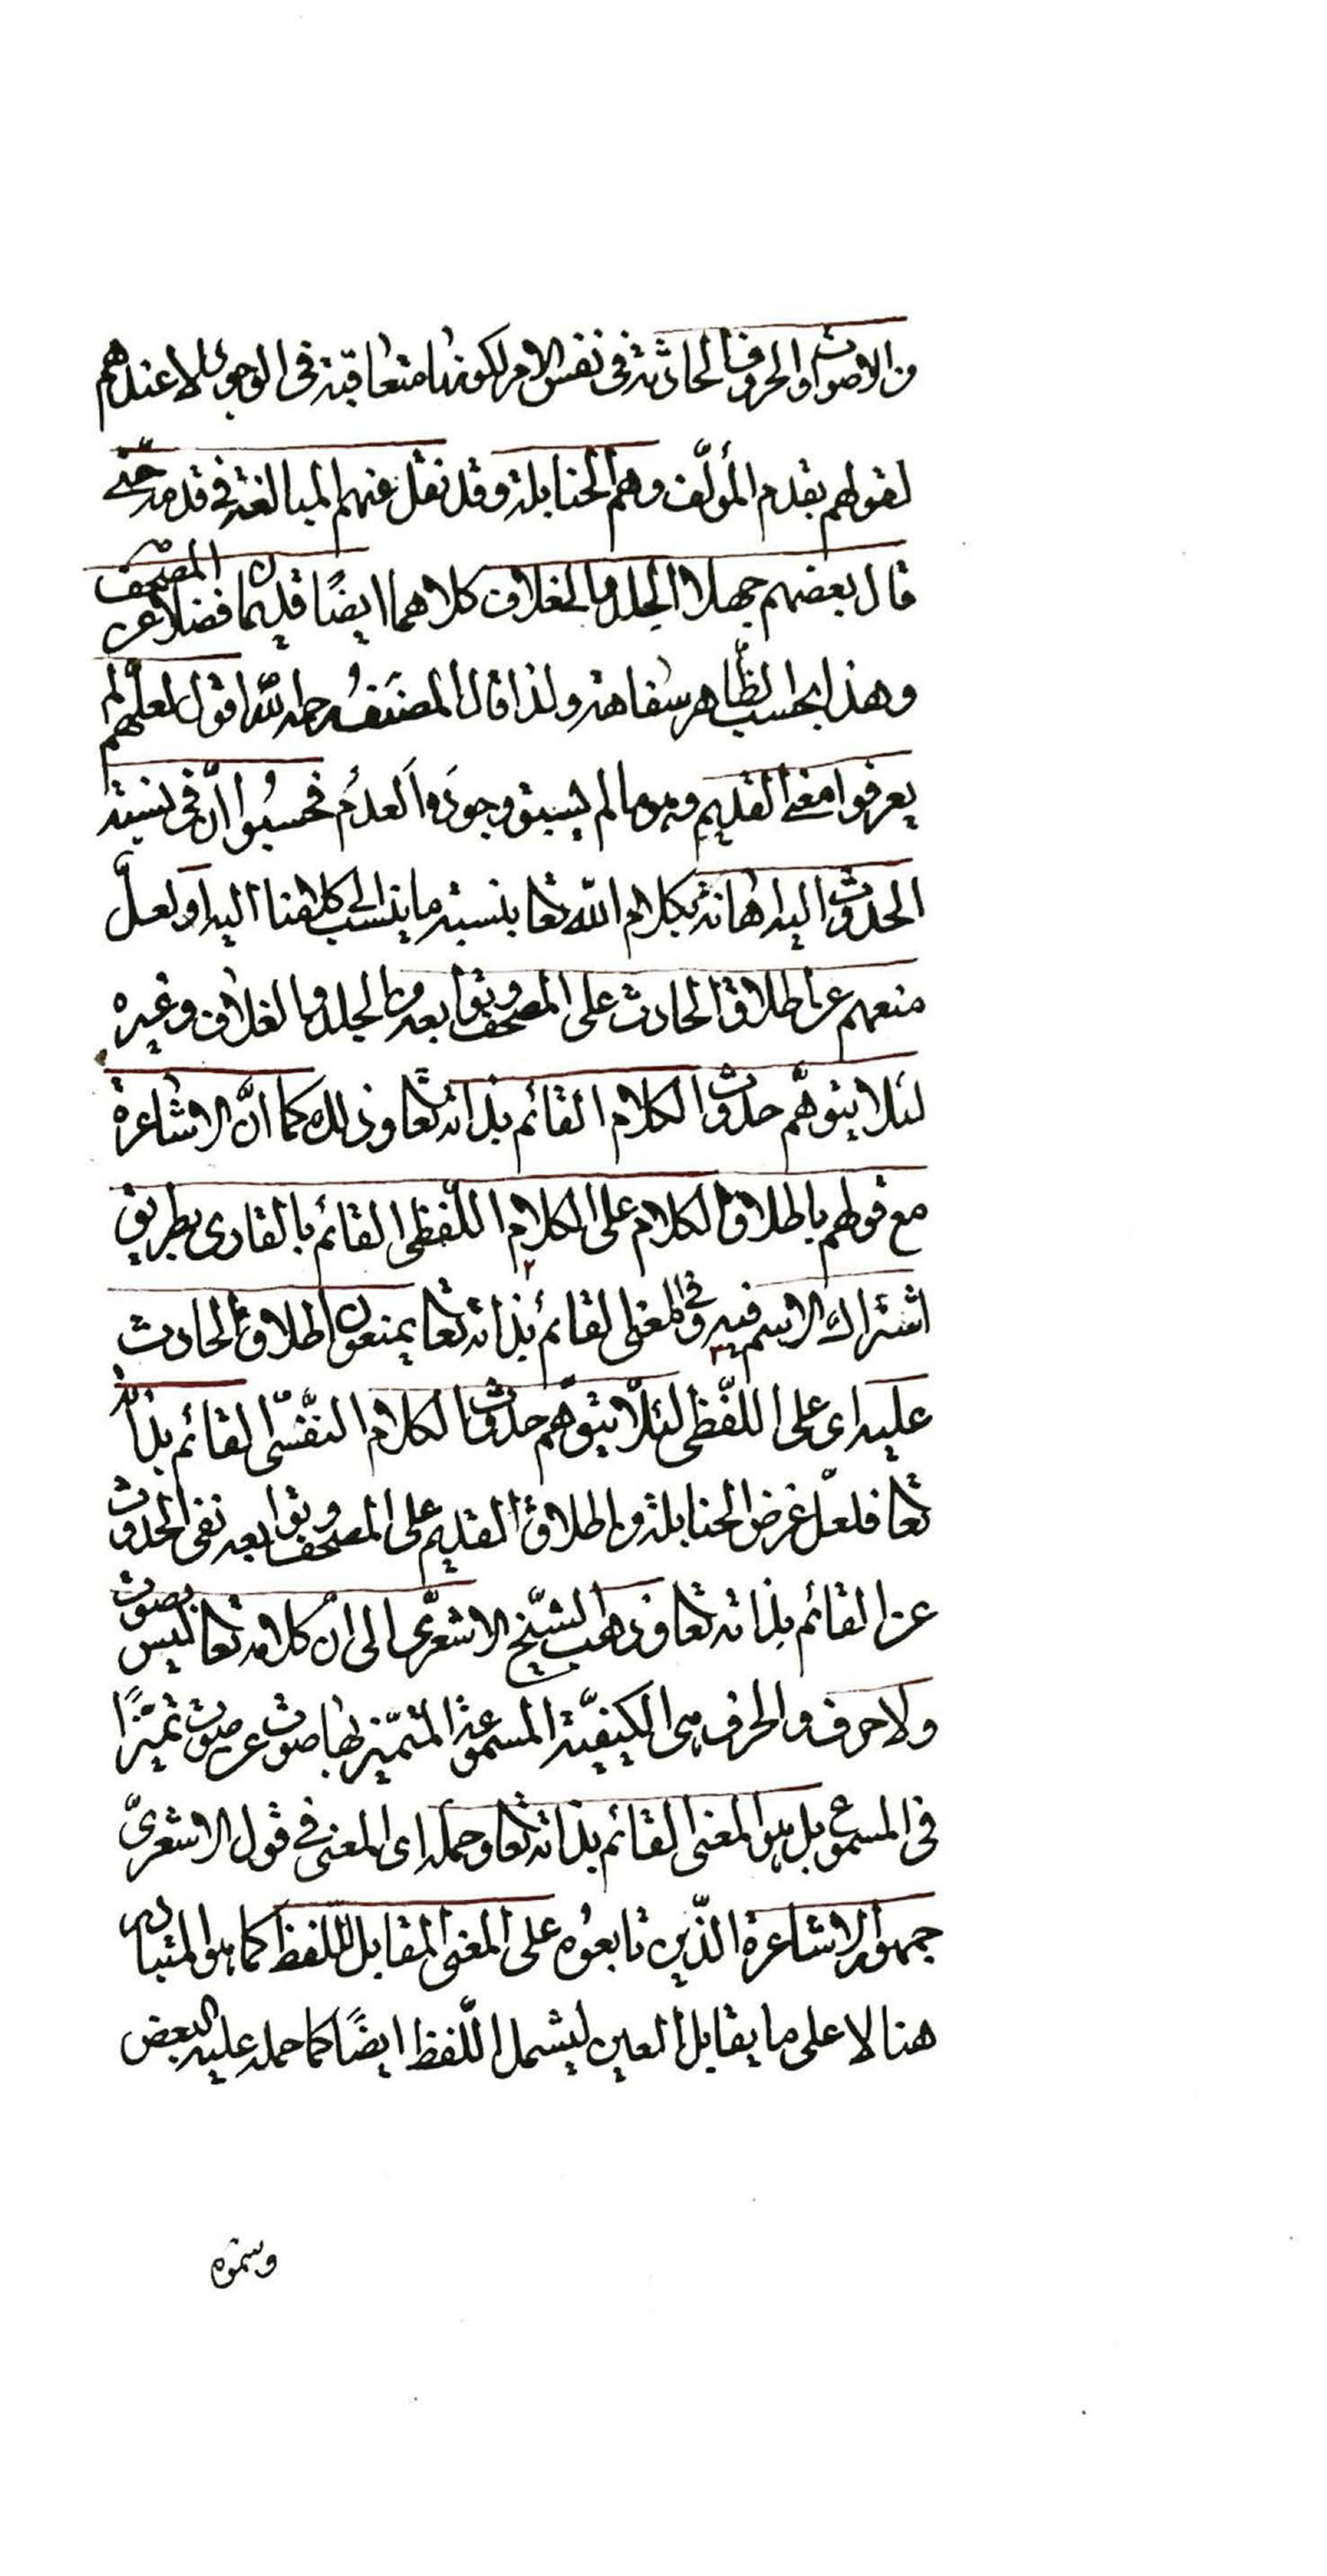 من الاصوات والحروف الحادثة فى نفس الامر لكونها متعاقبة فى الوجود لا عندهم
لقولهم بقدم المؤلّف وهم الحنابلة وقد نقل عنهم المبالغة فى قدمه حتّى
قال بعضهم جهلا الجلد والغلاف كلاهما ايضًا قديمان فضلا عن المصحف
وهذا بحسب الظّاهر سفاهة ولذا قال المصنّف رحمه اللّٰه اقول لعلّهم لم
يعرفوا معنى القديم وهو ما لم يسبق وجودَه العدمُ فحسبُوا انّ فى نسبة
الحدوث اليه اهانة بكلام اللّٰه تعا بنسبة ما يناسب الى كلامنا اليه او لعلّ
منعهم عن اطلاق الحادث على المصحف وتوابعه من الجلد والغلاف وغيره
لئلا يتوهّم حدوث الكلام القائم بذاته تعا وذلك كما انّ الاشاعرة
مع قولهم باطلاق الكلام على الكلام اللّفظى القائم بالقارى بطريق
اشتراك الاسم فيه وفى المعنى القائم بذاته تعا يمنعون اطلاق الحادث
عليه اى على اللّفظى لئلّا يتوهّم حدوث الكلام النفسّى القائم بذاته
تعا فلعلّ غرض الحنابلة من اطلاق القديم على المصحف وتوابعه نفى الحدوث
عن القائم بذاته تعا وذهب الشّيخ الاشعرّى الى ان كلامه تعا ليس بصوت
ولا حرف والحرف هى الكيفيّة المسموعة المتميّز بها صوت عن صوت تميّزًا
فى المسموع بل هو المعنى القائم بذاته تعا وحمله اى المعنى فى قول الاشعرىّ
جمهور الاشاعرة الّذين تابعوُه على المعنى المقابل للّفظ كما هو المتبادر
هنا لا على ما يقابل العين ليشمل اللّفظ ايضًا كما حمله عليه البعض
وستمره